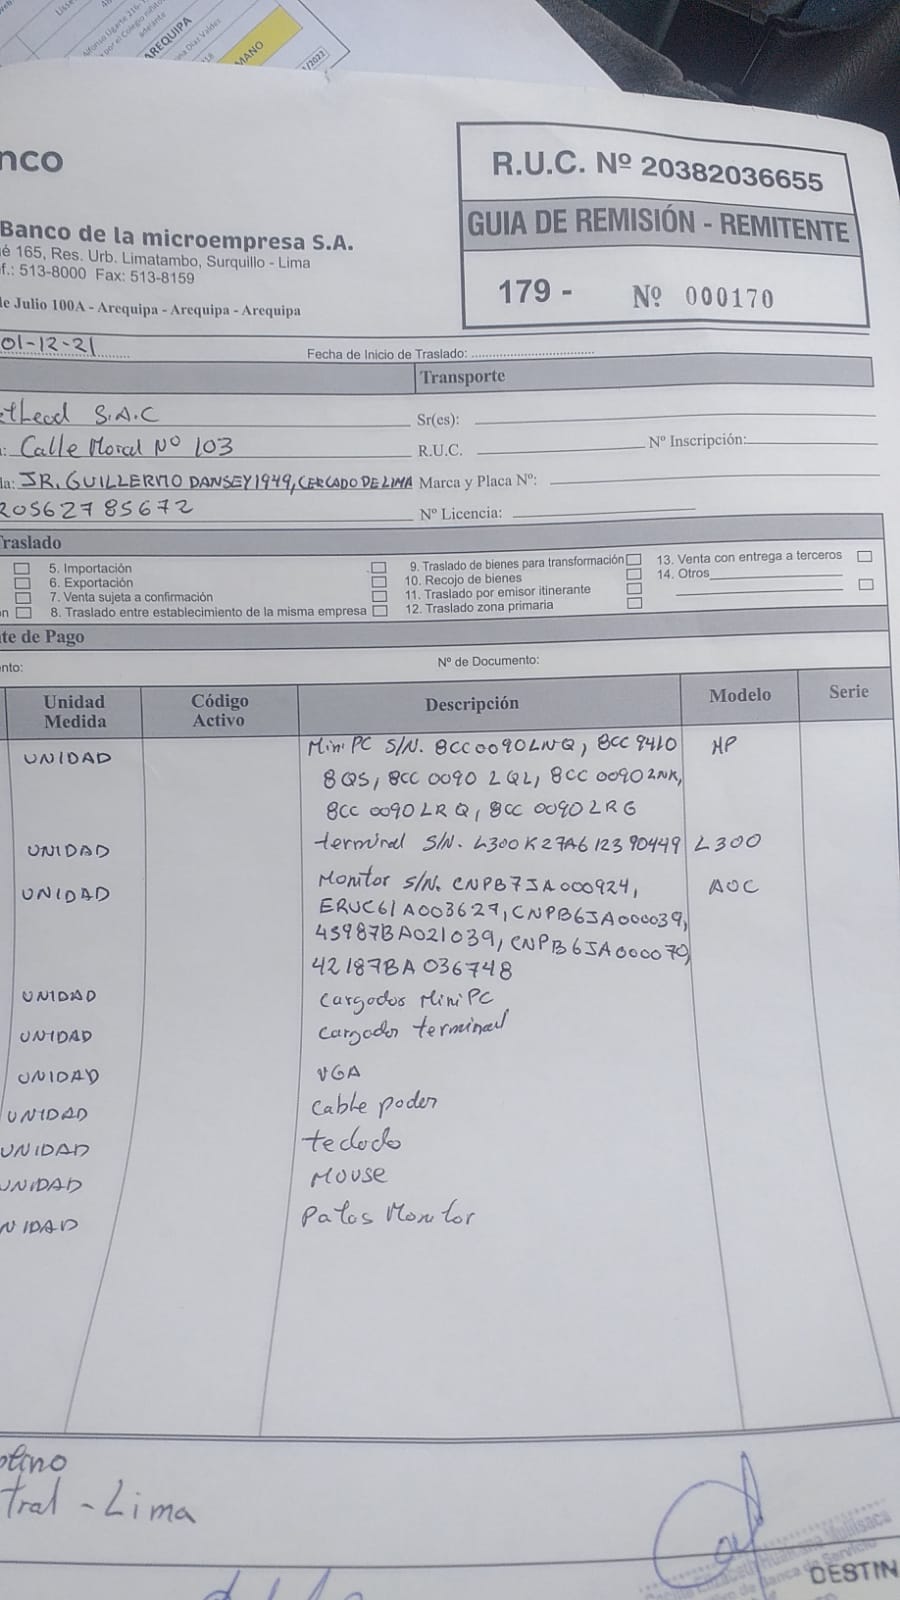 AREQUIPA
MANO
nco
Banco de la microempresa S.A.
é 165, Res. Urb. Limatambo, Surquillo - Lima
f.: 513-8000 Fax: 513-8159
de Julio 100A - Arequipa - Arequipa - Arequipa
R.U.C. Nº 20382036655
GUIA DE REMISIÓN - REMITENTE
179 - Nº 000170
01-12-21 Fecha de Inicio de Traslado:
Transporte
S.A.C Sr(es):
Calle Moral Nº 103 R.U.C. Nº Inscripción:
da: JR. GUILLERMO DANSEY 1949, CERCADO DE LIMA Marca y Placa Nº:
20562785672 Nº Licencia:
Traslado
5. Importación
6. Exportación
7. Venta sujeta a confirmación
8. Traslado entre establecimiento de la misma empresa
9. Traslado de bienes para transformación
10. Recojo de bienes
11. Traslado por emisor itinerante
12. Traslado zona primaria
13. Venta con entrega a terceros
14. Otros
te de Pago
ento: Nº de Documento:
Unidad Medida Código Activo Descripción Modelo Serie
UNIDAD Mini PC S/N. 8CC0090LNQ, 8CC9410 HP
8QS, 8CC 0090 LQL, 8CC 0090 LNK,
8CC 0090 LRQ, 8CC 0090 LRG
UNIDAD terminal S/N. L300K27A612390449 L300
UNIDAD Monitor S/N. CNPB7JA000924, AOC
ERUC61A003627, CNPB6JA000039,
45987BA021039, CNPB6JA000070,
42187BA036748
UNIDAD Cargados Mini PC
UNIDAD Cargador terminal
UNIDAD VGA
UNIDAD Cable poder
UNIDAD teclado
UNIDAD Mouse
NIDAD Patas Monitor
tral - Lima
DESTIN